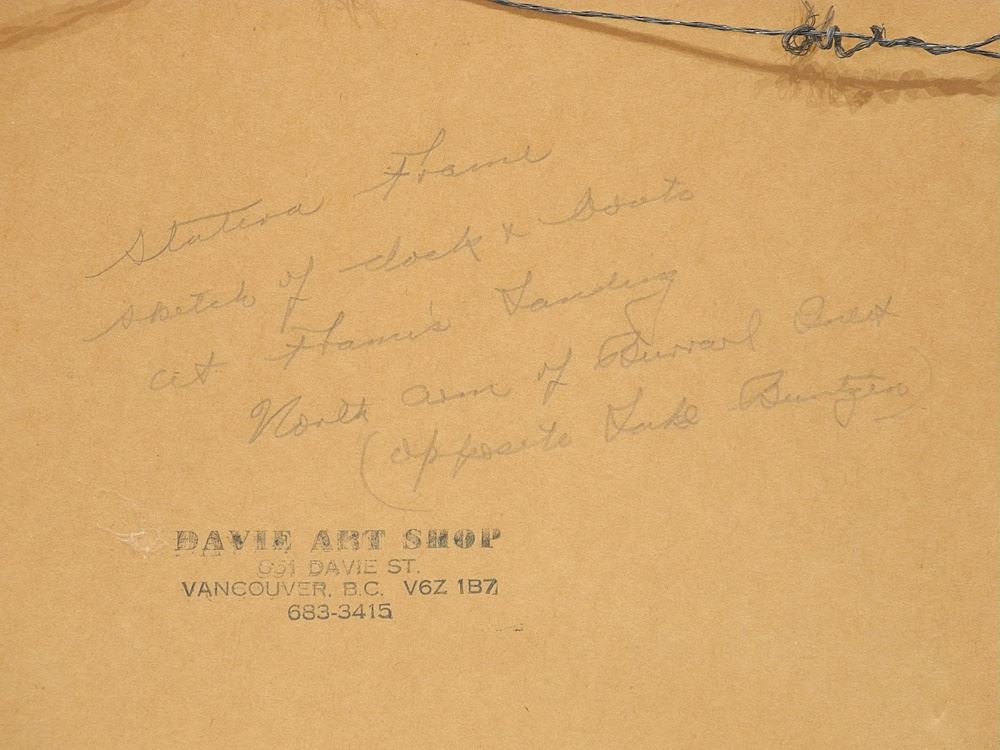 Statira Frame
sketch of dock & boats
at Frame's Landing
North arm of Burrard Inlet
(opposite Lake Buntzen)
DAVIE ART SHOP
DAVIE ST.
VANCOUVER, B.C. V6Z 1B7
683-3415